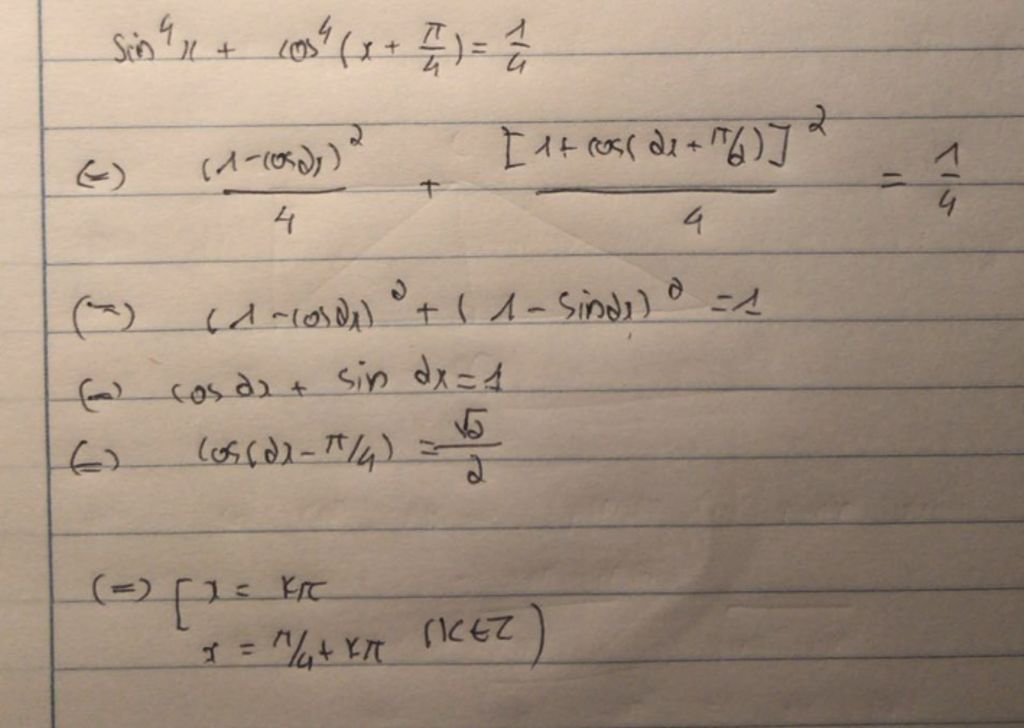 sin⁴x + cos⁴(x + π/4) = 1/4
(=) (1-cos2x)²/4 + [1+cos(2x+π/2)]²/4 = 1/4
(=) (1-cos2x)² + (1-sin2x)² = 1
(=) cos2x + sin2x = 1
(=) cos(2x-π/4) = √2/2
(=) [ x = kπ
x = π/4 + kπ (k∈Z)